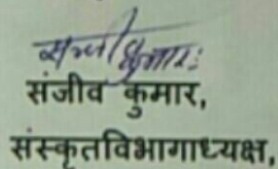 संजीव कुमार,
संस्कृतविभागाध्यक्ष,